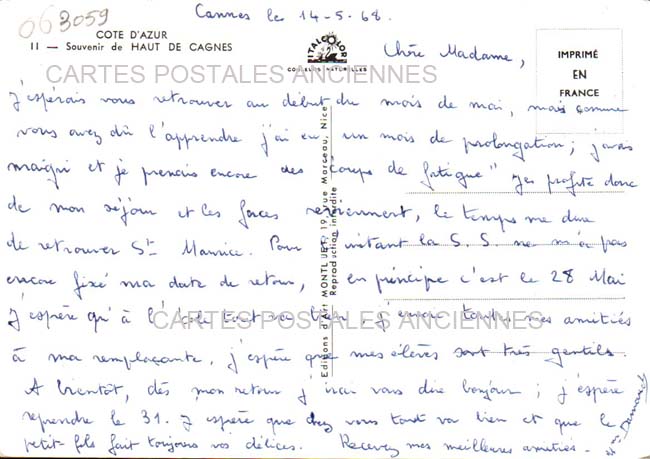 063059
Cannes le 14-5-68.
COTE D'AZUR
11 — Souvenir de HAUT DE CAGNES
ITALCOLOR
COULEURS NATURELLES
IMPRIMÉ
EN
FRANCE
CARTES POSTALES ANCIENNES
Chère Madame,
J'espérais vous retrouver au début du mois de mai, mais comme
vous avez dû l'apprendre j'ai eu un mois de prolongation; j'avais
maigri et je prenais encore des "coups de fatigue" J'ai profité donc
de mon séjour et les forces reviennent, le temps me dure
de retrouver St Maurice. Pour l'instant la S.S. ne m'a pas
encore fixé ma date de retour, en principe c'est le 28 Mai
J'espère qu'à l'école tout va bien, j'envoie toutes mes amitiés
CARTES POSTALES ANCIENNES
à ma remplaçante, j'espère que mes élèves sont très gentils.
A bientôt, dès mon retour j'irai vous dire bonjour; j'espère
reprendre le 31. J'espère que chez vous tout va bien et que le
petit-fils fait toujours vos délices. Recevez mes meilleures amitiés -
Editions d'Art MONTLUET, 19, rue Marceau, Nice
Reproduction interdite